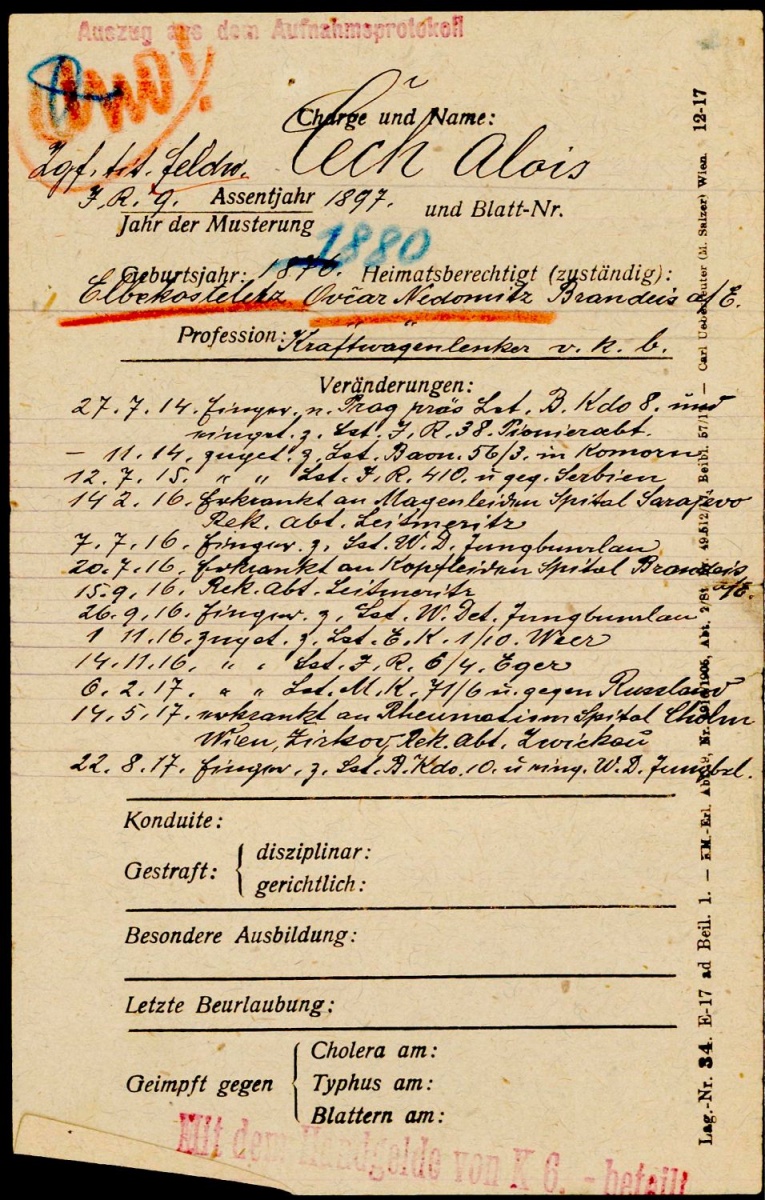 Auszug aus dem Aufnahmsprotokoll
Charge und Name:
Zgf. tit. feldw. Čech Alois
I. R. 9. Assentjahr 1897. und Blatt-Nr.
Jahr der Musterung
1880
Geburtsjahr: 1876. Heimatsberechtigt (zuständig):
Elbekosteletz Ovčar Nedomitz Brandeis a/E.
Profession: Kraftwagenlenker v. k. b.
Veränderungen:
27. 7. 14. Einger. n. Prag präs Lst. B. Kdo 8. und
einget. z. Lst. I. R. 38. Pionierabt.
– 11. 14. zuget. z. Lst. Baon. 56/3. in Komorn
12. 7. 15. " " Lst. I. R. 410. u geg. Serbien
14 2. 16. Erkrankt an Magenleiden Spital Sarajevo
Rek. abt. Leitmeritz
7. 7. 16. Einger. z. Lst. W. D. Jungbunzlau
20. 7. 16. Erkrankt an Kopfleiden Spital Brandeis a/E.
15. 9. 16. Rek. abt. Leitmeritz
26. 9. 16. Einger. z. Lst. W. Det. Jungbunzlau
1 11. 16. zuget. z. Lst. E. K. 1/10. Weer
14. 11. 16. " " Lst. I. R. 6/4. Eger
6. 2. 17. " " Lst. M. K. 71/6 u. gegen Russland
14. 5. 17. erkrankt an Rheumatism Spital Cholm
Wien, Zirkov, Rek. abt. Zwickau
22. 8. 17. Einger. z. Lst. B. Kdo. 10. u eing. W. D. Jungbzl.
Konduite:
Gestraft: { disziplinar:
gerichtlich:
Besondere Ausbildung:
Letzte Beurlaubung:
Geimpft gegen { Cholera am:
Typhus am:
Blattern am:
Mit dem Handgelde von K 6. - beteilt
Lag.-Nr. 34. E-17 ad Beil. 1. — KM.-Erl. Abt. Beibl. — Carl Ueberreuter (M. Salzer) Wien. 12-17